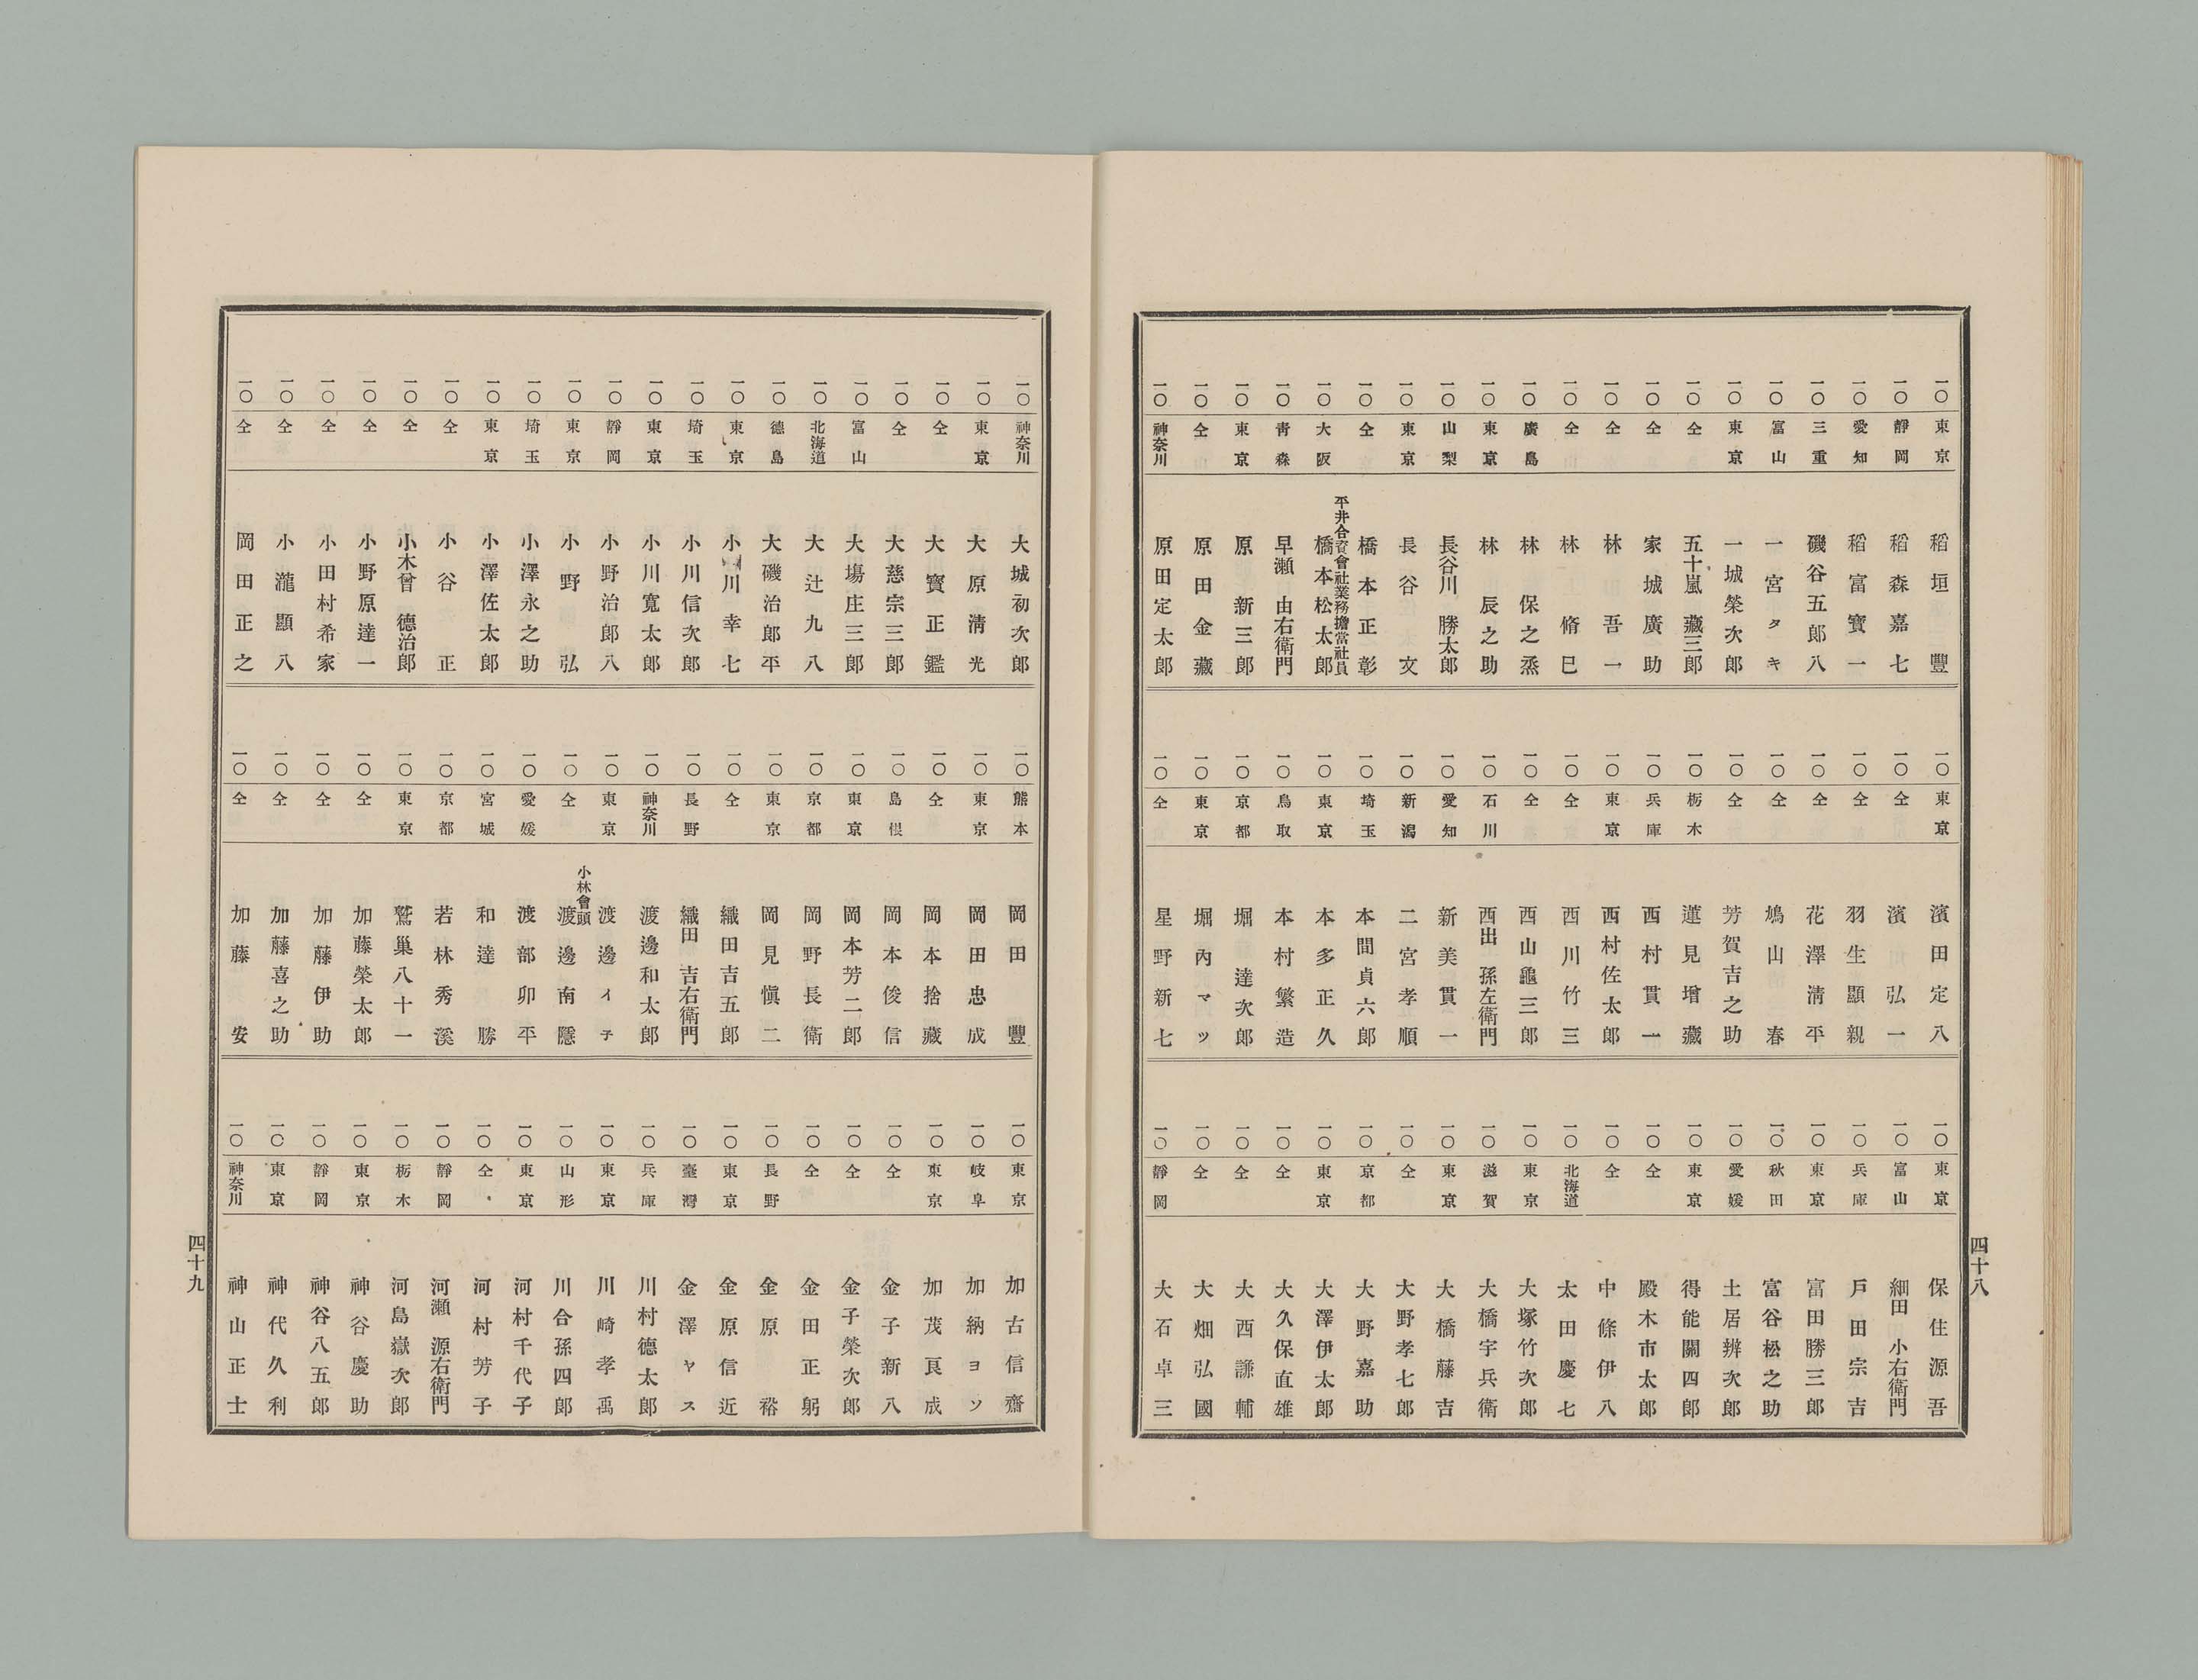 一〇 東京 稻垣豐
一〇 靜岡 稻森嘉七
一〇 愛知 稻富寶一
一〇 三重 磯谷五郎八
一〇 富山 一宮タキ
一〇 東京 一城榮次郎
一〇 仝 五十嵐藏三郎
一〇 仝 家城廣助
一〇 仝 林吾一
一〇 仝 林脩巳
一〇 廣島 林保之烝
一〇 東京 林辰之助
一〇 山梨 長谷川勝太郎
一〇 東京 長谷文
一〇 仝 橋本正彰
一〇 大阪 平井合資會社業務擔當社員 橋本松太郎
一〇 靑森 早瀬由右衛門
一〇 東京 原新三郎
一〇 仝 原田金藏
一〇 神奈川 原田定太郎
一〇 東京 濱田定八
一〇 仝 濱弘一
一〇 仝 羽生顯親
一〇 仝 花澤淸平
一〇 仝 鳩山春
一〇 仝 芳賀吉之助
一〇 栃木 蓮見增藏
一〇 兵庫 西村貫一
一〇 東京 西村佐太郎
一〇 仝 西川竹三
一〇 仝 西山龜三郎
一〇 石川 西出孫左衛門
一〇 愛知 新美貫一
一〇 新潟 二宮孝順
一〇 埼玉 本間貞六郎
一〇 東京 本多正久
一〇 鳥取 本村繁造
一〇 京都 堀達次郎
一〇 東京 堀內マツ
一〇 仝 星野新七
一〇 東京 保住源吾
一〇 富山 細田小右衛門
一〇 兵庫 戶田宗吉
一〇 東京 富田勝三郎
一〇 秋田 富谷松之助
一〇 愛媛 土居辨次郎
一〇 東京 得能關四郎
一〇 仝 殿木市太郎
一〇 仝 中條伊八
一〇 北海道 太田慶七
一〇 東京 大塚竹次郎
一〇 滋賀 大橋宇兵衛
一〇 東京 大橋藤吉
一〇 仝 大野孝七郎
一〇 京都 大野嘉助
一〇 東京 大澤伊太郎
一〇 仝 大久保直雄
一〇 仝 大西謙輔
一〇 仝 大畑弘國
一〇 靜岡 大石卓三
四十八
一〇 神奈川 大城初次郎
一〇 東京 大原淸光
一〇 仝 大寳正鑑
一〇 仝 大慈宗三郎
一〇 富山 大塲庄三郎
一〇 北海道 大辻九八
一〇 德島 大磯治郎平
一〇 東京 小川幸七
一〇 埼玉 小川信次郎
一〇 東京 小川寬太郎
一〇 靜岡 小野治郎八
一〇 東京 小野弘
一〇 埼玉 小澤永之助
一〇 東京 小澤佐太郎
一〇 仝 小谷正
一〇 仝 小木曾德治郎
一〇 仝 小野原達一
一〇 仝 小田村希家
一〇 仝 小瀧顯八
一〇 仝 岡田正之
一〇 熊本 岡田豐
一〇 東京 岡田忠成
一〇 仝 岡本捨藏
一〇 島根 岡本俊信
一〇 東京 岡本芳二郎
一〇 京都 岡野長衛
一〇 東京 岡見愼二
一〇 仝 織田吉五郎
一〇 長野 織田吉右衛門
一〇 神奈川 渡邊和太郎
一〇 東京 渡邊イ子
一〇 仝 小林會頭 渡邊南隱
一〇 愛媛 渡部卯平
一〇 宮城 和達勝
一〇 京都 若林秀溪
一〇 東京 鷲巢八十一
一〇 仝 加藤榮太郎
一〇 仝 加藤伊助
一〇 仝 加藤喜之助
一〇 仝 加藤安
一〇 東京 加古信齋
一〇 岐阜 加納ヨソ
一〇 東京 加茂良成
一〇 仝 金子新八
一〇 仝 金子榮次郎
一〇 仝 金田正躬
一〇 長野 金原裕
一〇 東京 金原信近
一〇 臺灣 金澤ヤス
一〇 兵庫 川村德太郎
一〇 東京 川崎孝禹
一〇 山形 川合孫四郎
一〇 東京 河村千代子
一〇 仝 河村芳子
一〇 靜岡 河瀬源右衛門
一〇 栃木 河島嶽次郎
一〇 東京 神谷慶助
一〇 靜岡 神谷八五郎
一〇 東京 神代久利
一〇 神奈川 神山正士
四十九